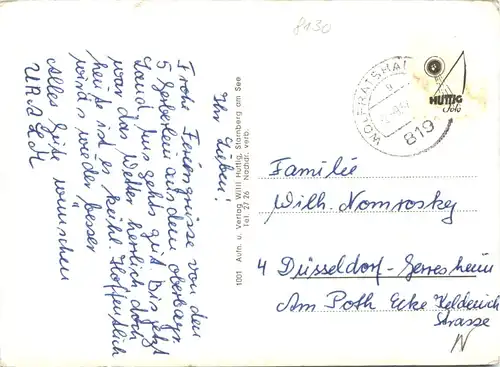 8130
Ihr Lieben!
Frohe Feriengrüsse von den
5 Gerberlein aus dem oberbayr.
Land. Uns gehts gut. Bis jetzt
war das Wetter herrlich doch
heute ist es kühl. Hoffentlich
wird's wieder besser
Alles Gute wünschen
1001 Aufn. u. Verlag Willi Huttig, Starnberg am See
Tel. 27 26 Nachdr. verb.
WOLFRATSHA
819
HUTTIG
Foto
Familie
Wilh. Nomrosky
4 Düsseldorf-Gerresheim
Am Poth Ecke Heldericher
Strasse